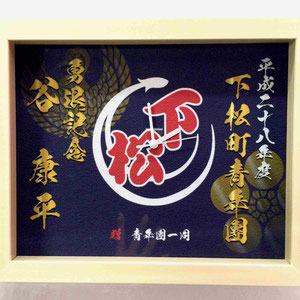 平成二十八年度
下松町青年團
下松
勇退記念
谷 康平
贈 青年團一同